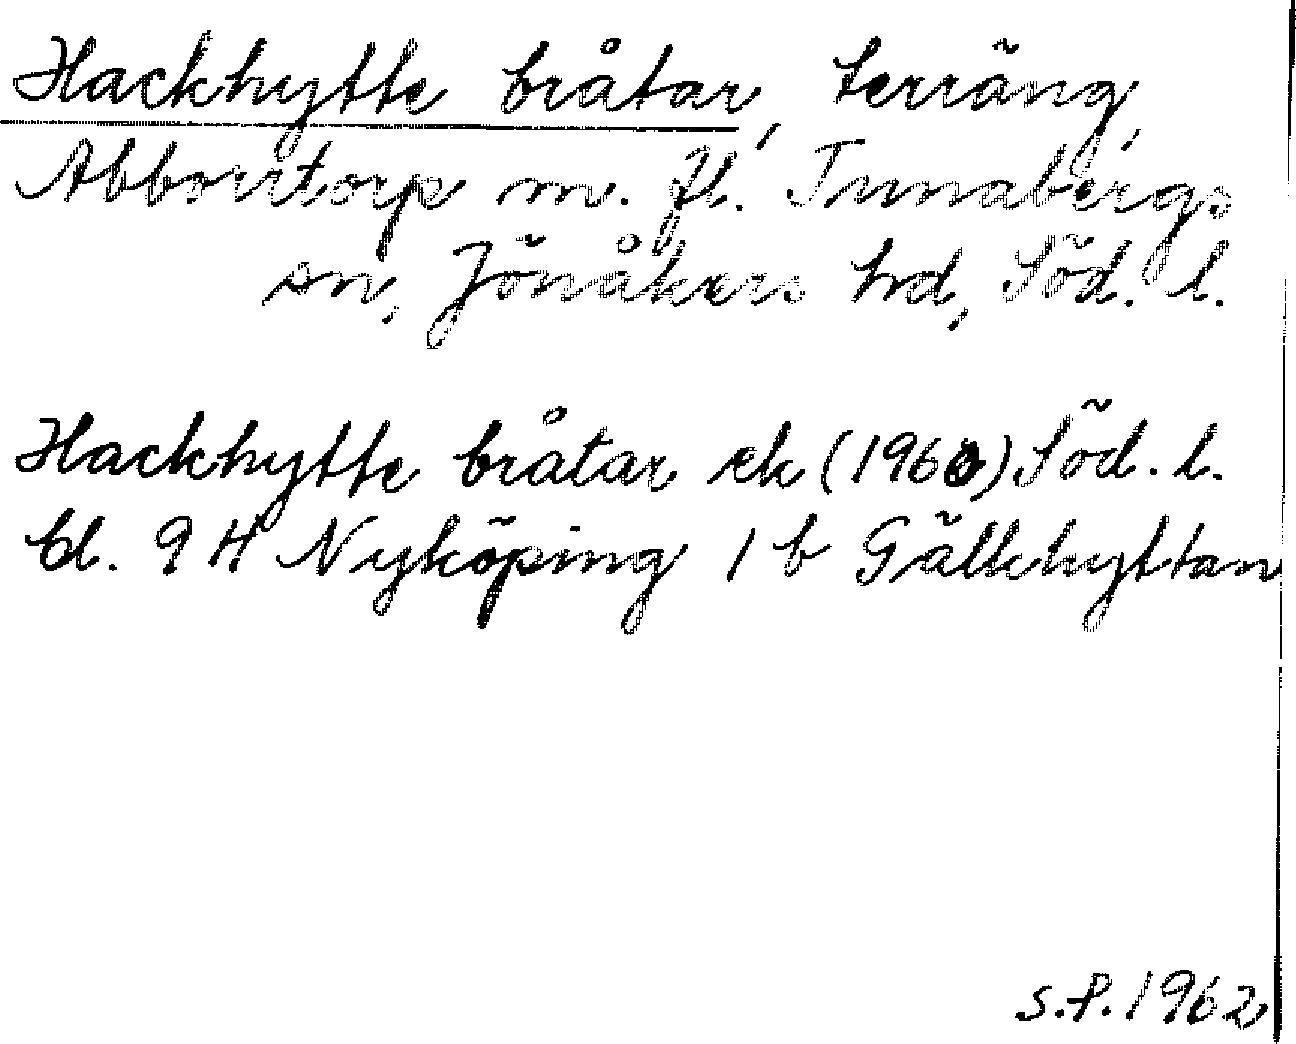 Hackhytte bråtar, terräng,
Abborrtorp m. fl. Tunabergs
sn, Jönåkers hd, Söd. l.
Hackhytte bråtar ek (1960) Söd. l.
bl. 9 H Nyköping 1 b Gälkhyttan
S.P. 1962